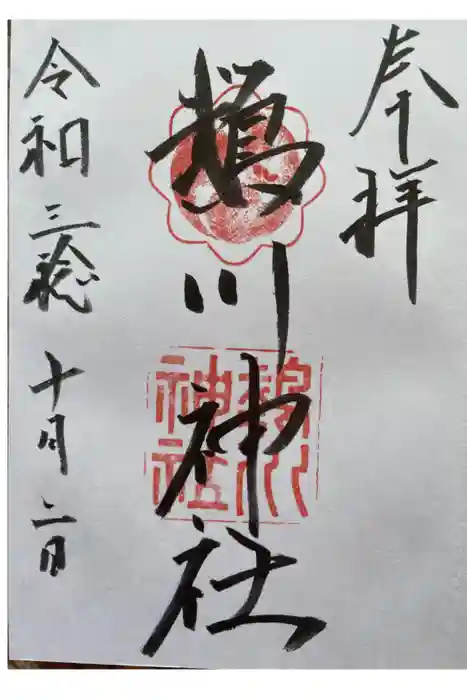 奉拝
鵜川神社
令和三稔十月二日
鵜川
神社